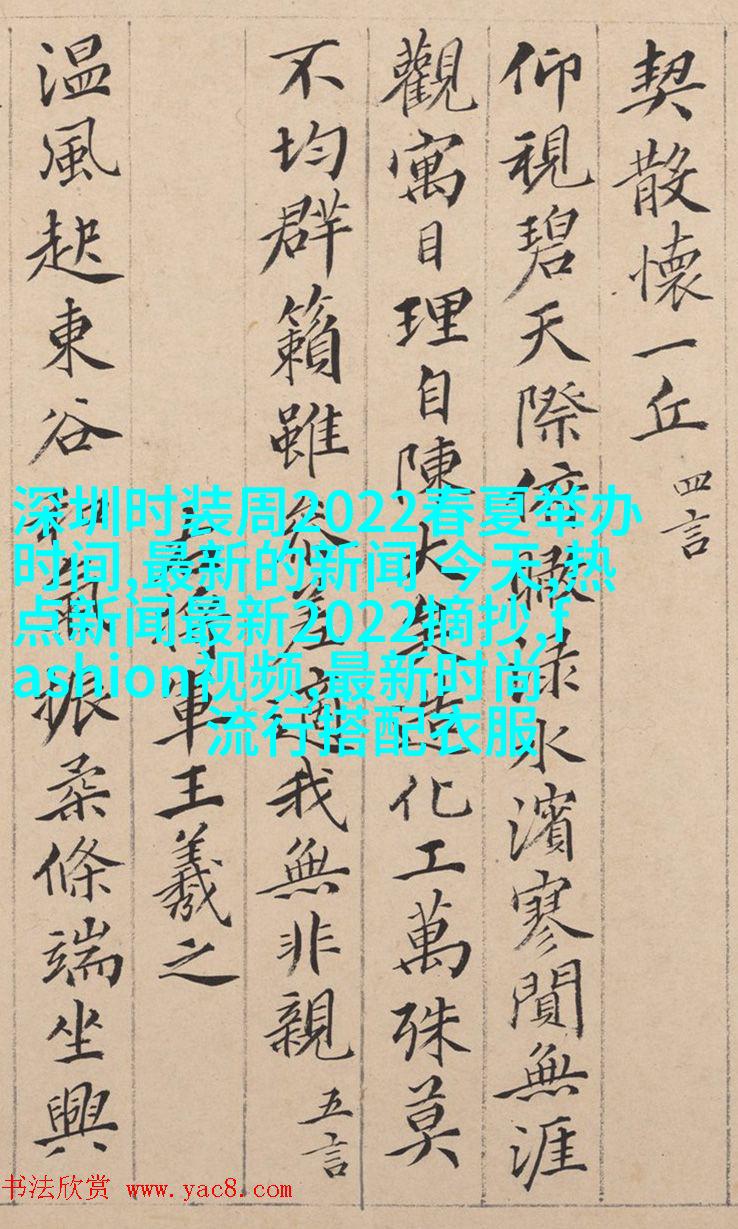 契散懷一丘 四言
仰視碧天際俯瞰淥水濱寥闃無涯
觀寓目理自陳大矣造化工萬殊莫
不均群籟雖參差適我無非親 五言
右將軍王羲之
温風起東谷和氣振柔條端坐興
深圳时装周2022春夏举办
时间,最新的新闻 今天,热
点新闻最新2022摘抄,f
ashion视频,最新时尚
流行搭配衣服
书法欣赏 www.yac8.com